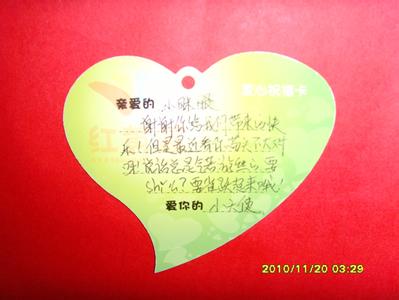 爱心祝福卡
亲爱的 小眯眼
谢谢你给我们带来的快
乐！但是最近看你苗头不太对
说话总是气若游丝 要
shi了？要雀跃起来哦！
爱你的 小天使
红
2010/11/20 03:29